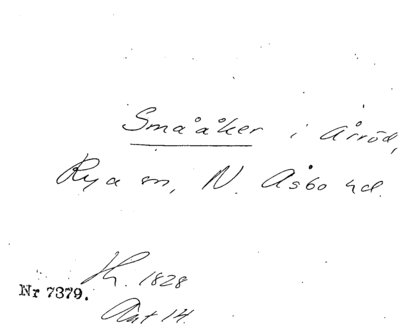 Smååker i Årröd,
Rya sn, N. Åsbo hd.
H. 1828
Nr 7379.
Akt 14.